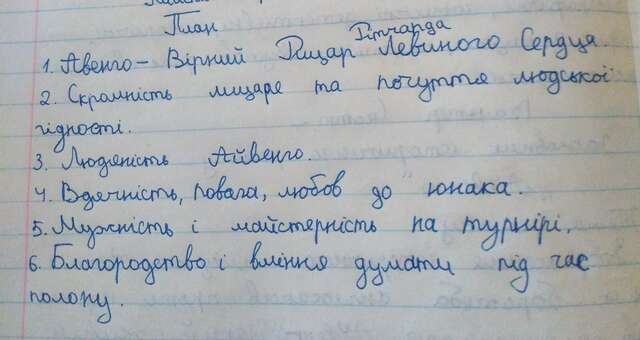 План
Річарда
1. Авенго – Вірний Лицар Левиного Серця.
2. Скромність лицаря та почуття людської
гідності.
3. Людяність Айвенго.
4. Вдячність, повага, любов до юнака.
5. Мужність і майстерність на турнірі.
6. Благородство і вміння думати під час
полону.